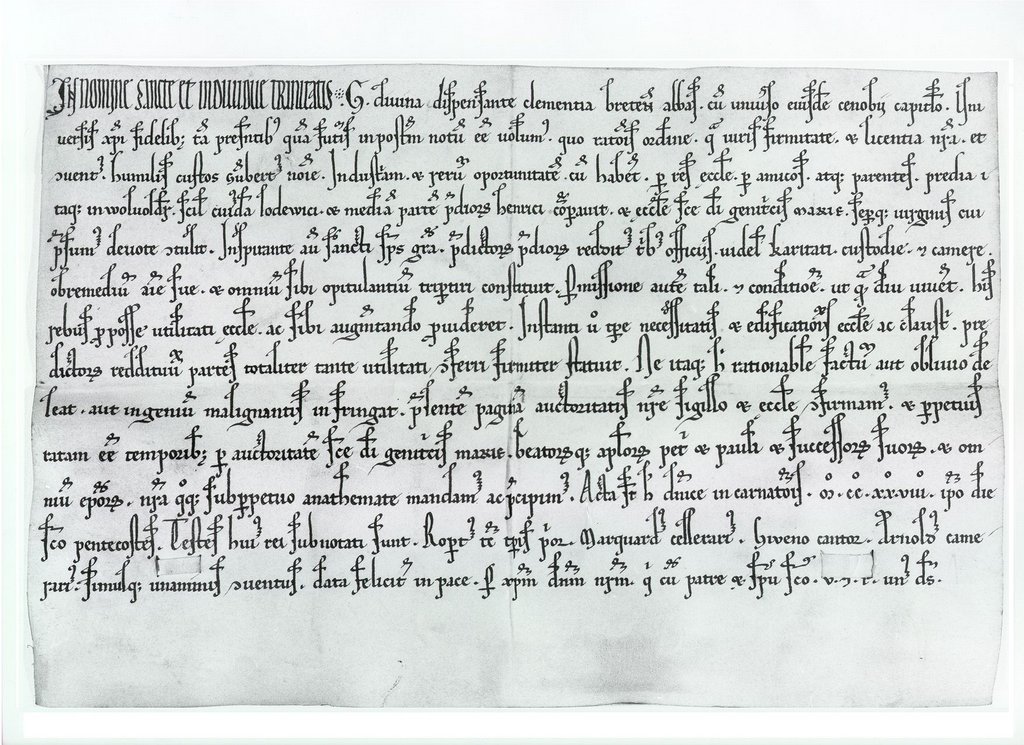 IN NOMINE SANCTE ET INDIVIDUE TRINITATIS. G. divina dispensante clementia breteñ abbas. cū univso eiusde cenobii capitlo. Uni
versis xpi fidelib; tā presentib' quā futis in postm notū eē volum'. quo ratois ordine. q iuris firmitate. & licentia nra. et
ɔvent'. humilis custos Gubert' noie. Industam. & rerū oportunitate cū habet. p res eccle. p amicos. atq; parentes. predia i
taq; in wolvoldes. scil cuida lodewici. & media parte pdiorz henrici cōparavit. & eccle sce di genitcis marie. semperq; virginis cui
psum devote ɔtulit. Inspirante au sancti sps gra. pdictorz pdiorz reddit' tb' officiis. videl karitati. custodie. 7 camere.
ob remediū aie sue. & omniū sibi opitulantiū triptiri constituit. Pmissione aute tali. 7 conditioe. ut q diu viveret. his
rebus p posse utilitati eccle. ac sibi augmtando pvideret. Instanti v tpe necessitatis & edificatiois eccle ac claustri. pre
dictorz reddituū partes totaliter tante utilitati ɔferri firmiter statuit. Ne itaq; h rationabile factū aut oblivio de
leat. aut ingeniū malignantis infringat. psente pagina auctoritatis nre sigillo & eccle ɔfirmam'. & ppetuis
tatam eē temporib; p auctoritate sce di genitcis marie. beatorzq; aplorz pet & pauli & successorz suorz. & om
niū eporz. nra qq; sub ppetuo anathemate mandam' ac pcipim'. Acta st h dnice incarnatois. m. ce. xx. viii. ipo die
sco pentecostes. Testes hui' rei subnotati sunt. Ropt' te tpis por. Marquard' cellerari'. Hiveno cantor. Arnold' came
rari'. simulq; unanimis ɔventus. data felicit in pace. P xpm dnm nrm. q cu patre & spu sco. v. 7. r. un' ds.